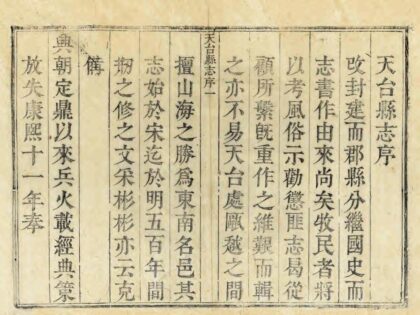 天台縣志序
改封建而郡縣分繼國史而
志書作由來尚矣牧民者將
以考風俗示勸懲匪志曷從
顧所繫旣重作之維艱而輯
天台縣志序一
之亦不易天台處甌越之間
擅山海之勝爲東南名邑其
志始於宋迄於明五百年間
刱之修之文采彬彬亦云克
備
興朝定鼎以來兵火載經典策
放失康熙十一年奉